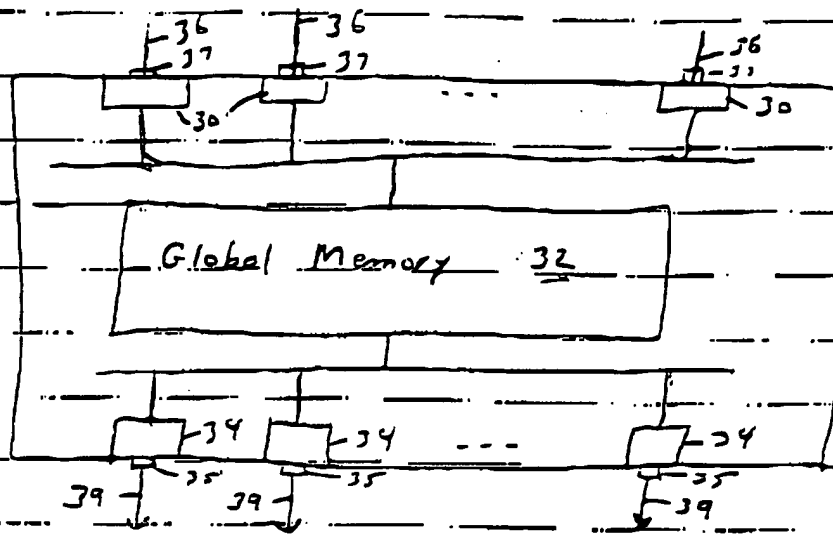 36 36 36
37 37 37
30 30
Global Memory 32
34 34 34
35 35 35
39 39 39